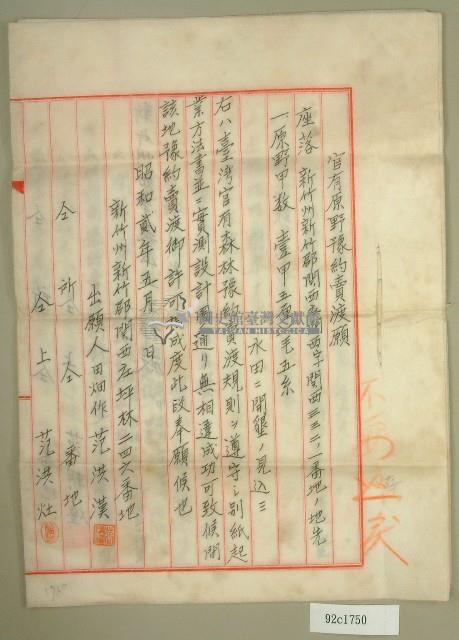 官有原野豫約賣渡願
座落 新竹州新竹郡關西庄關西字關西三三二ノ一番地ノ地先
一原野甲数 壹甲五厘毛五糸
水田ニ開墾ノ見込ミ
右ハ臺灣官有森林豫約賣渡規則ヲ遵守シ別紙起
業方法書並ニ實測設計圖通リ無相違成功可致候間
該地豫約賣渡御許可相成度此段奉願候也
昭和貳年五月 日
新竹州新竹郡關西庄坪林二四六番地
出願人田畑作 范洪漢
仝 所 仝 番地
仝 上 仝 范洪灶
國史館臺灣文獻館
TAIWAN HISTORICA
92c1750